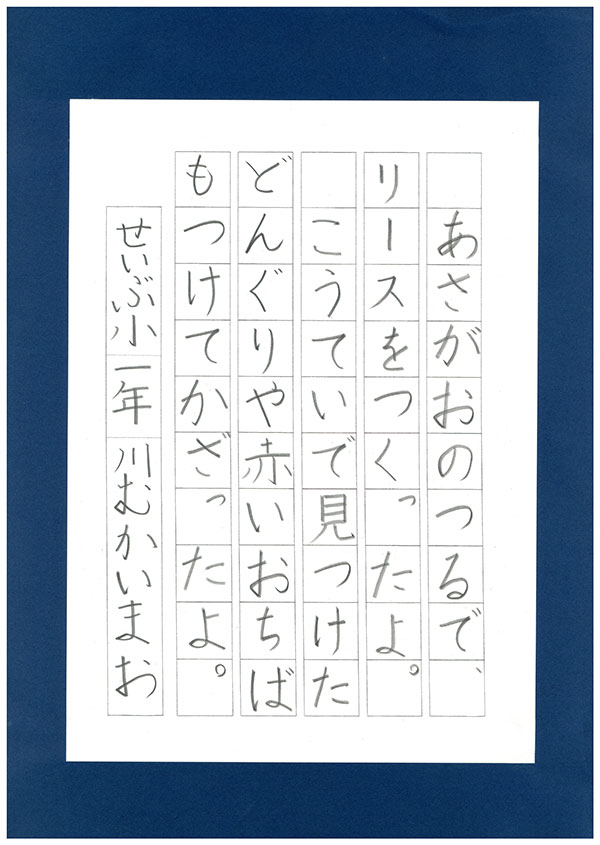 あさがおのつるで、
リースをつくったよ。
　こうていで見つけた
どんぐりや赤いおちば
もつけてかざったよ。
せいぶ小 一年 川むかいまお